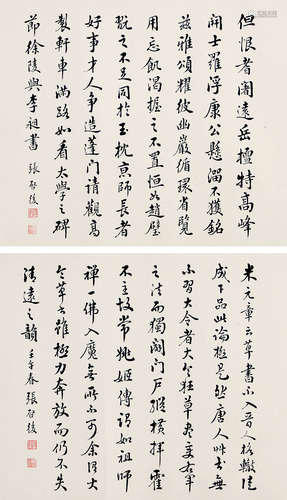 但恨耆闍遠岳檀特高峰
開士羅浮康公懸溜不獲銘
茲雅頌耀彼幽巖循環省覽
用忘飢渴握之不置恒如趙璧
玩之不足同於玉枕京師長者
好事才人爭造蓬門請觀高
製軒車滿路如看太學之碑
節徐陵與李昶書 張啟後
米元章云草書不入晉人格轍徒
成下品此論極是然唐人草書無
不習大令者大令狂草盡變右軍
之法而獨闢門戶縱橫揮霍
不主故常姚姬傳謂如祖師
禪入佛入魔無所不可余謂大
令草書雖極力奔放而仍不失
清遠之韻 壬午春 張啟後